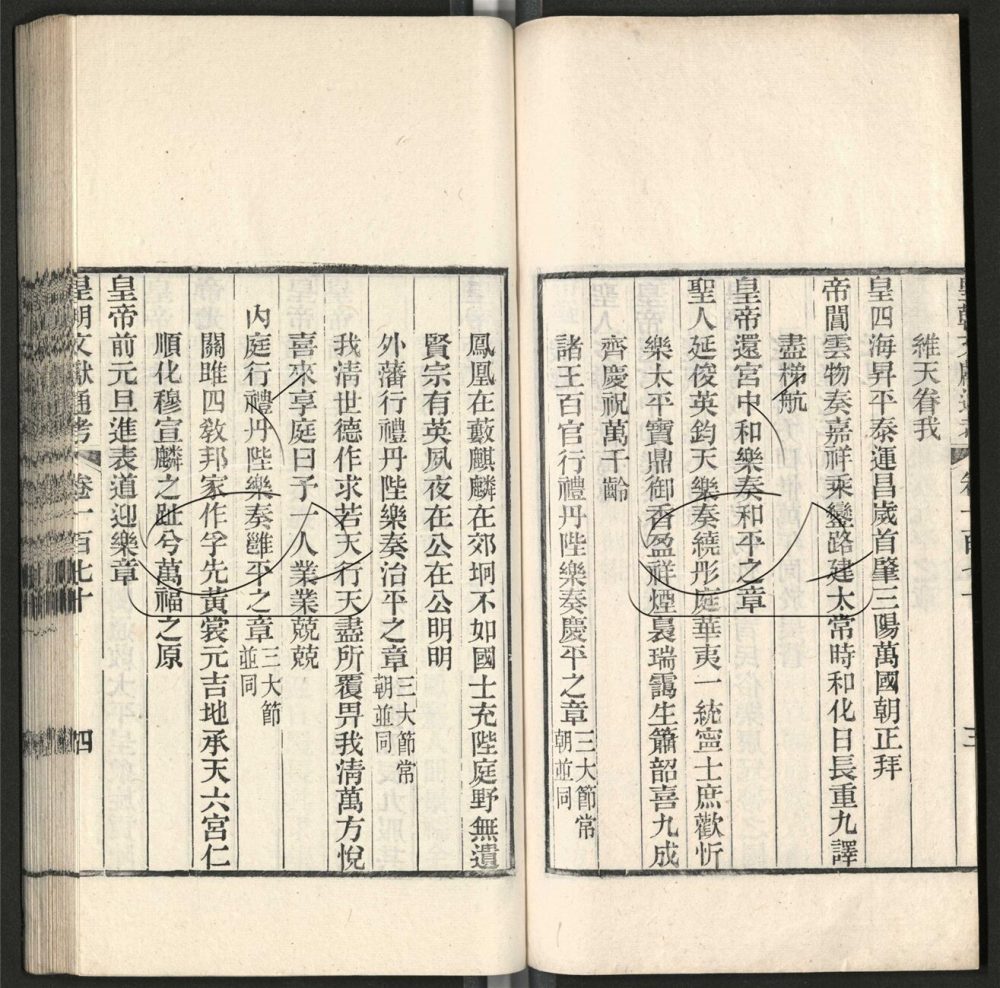 維天眷我
皇四海昇平泰運昌歲首肇三陽萬國朝正拜
帝閽雲物奏嘉祥乘鑾路建太常時和化日長重九譯
盡梯航
皇帝還宮中和樂奏和平之章
聖人延俊英鈞天樂奏繞彤庭華夷一統寧士庶歡忻
樂太平寶鼎御香盈祥煙裊瑞靄生簫韶喜九成
齊慶祝萬千齡
諸王百官行禮丹陛樂奏慶平之章三大節常
朝並同
鳳凰在藪麒麟在郊坰不如國士充陛庭野無遺
賢宗有英夙夜在公在公明明
外藩行禮丹陛樂奏治平之章三大節常
朝並同
我淸世德作求若天行天盡所覆畀我淸萬方悅
喜來享庭曰予一人業業兢兢
內庭行禮丹陛樂奏雝平之章三大節
並同
關雎四敎邦家作孚先黃裳元吉地承天六宮仁
順化穆宣麟之趾兮萬福之原
皇帝前元旦進表道迎樂章
皇朝文獻通考 卷一百七十 四